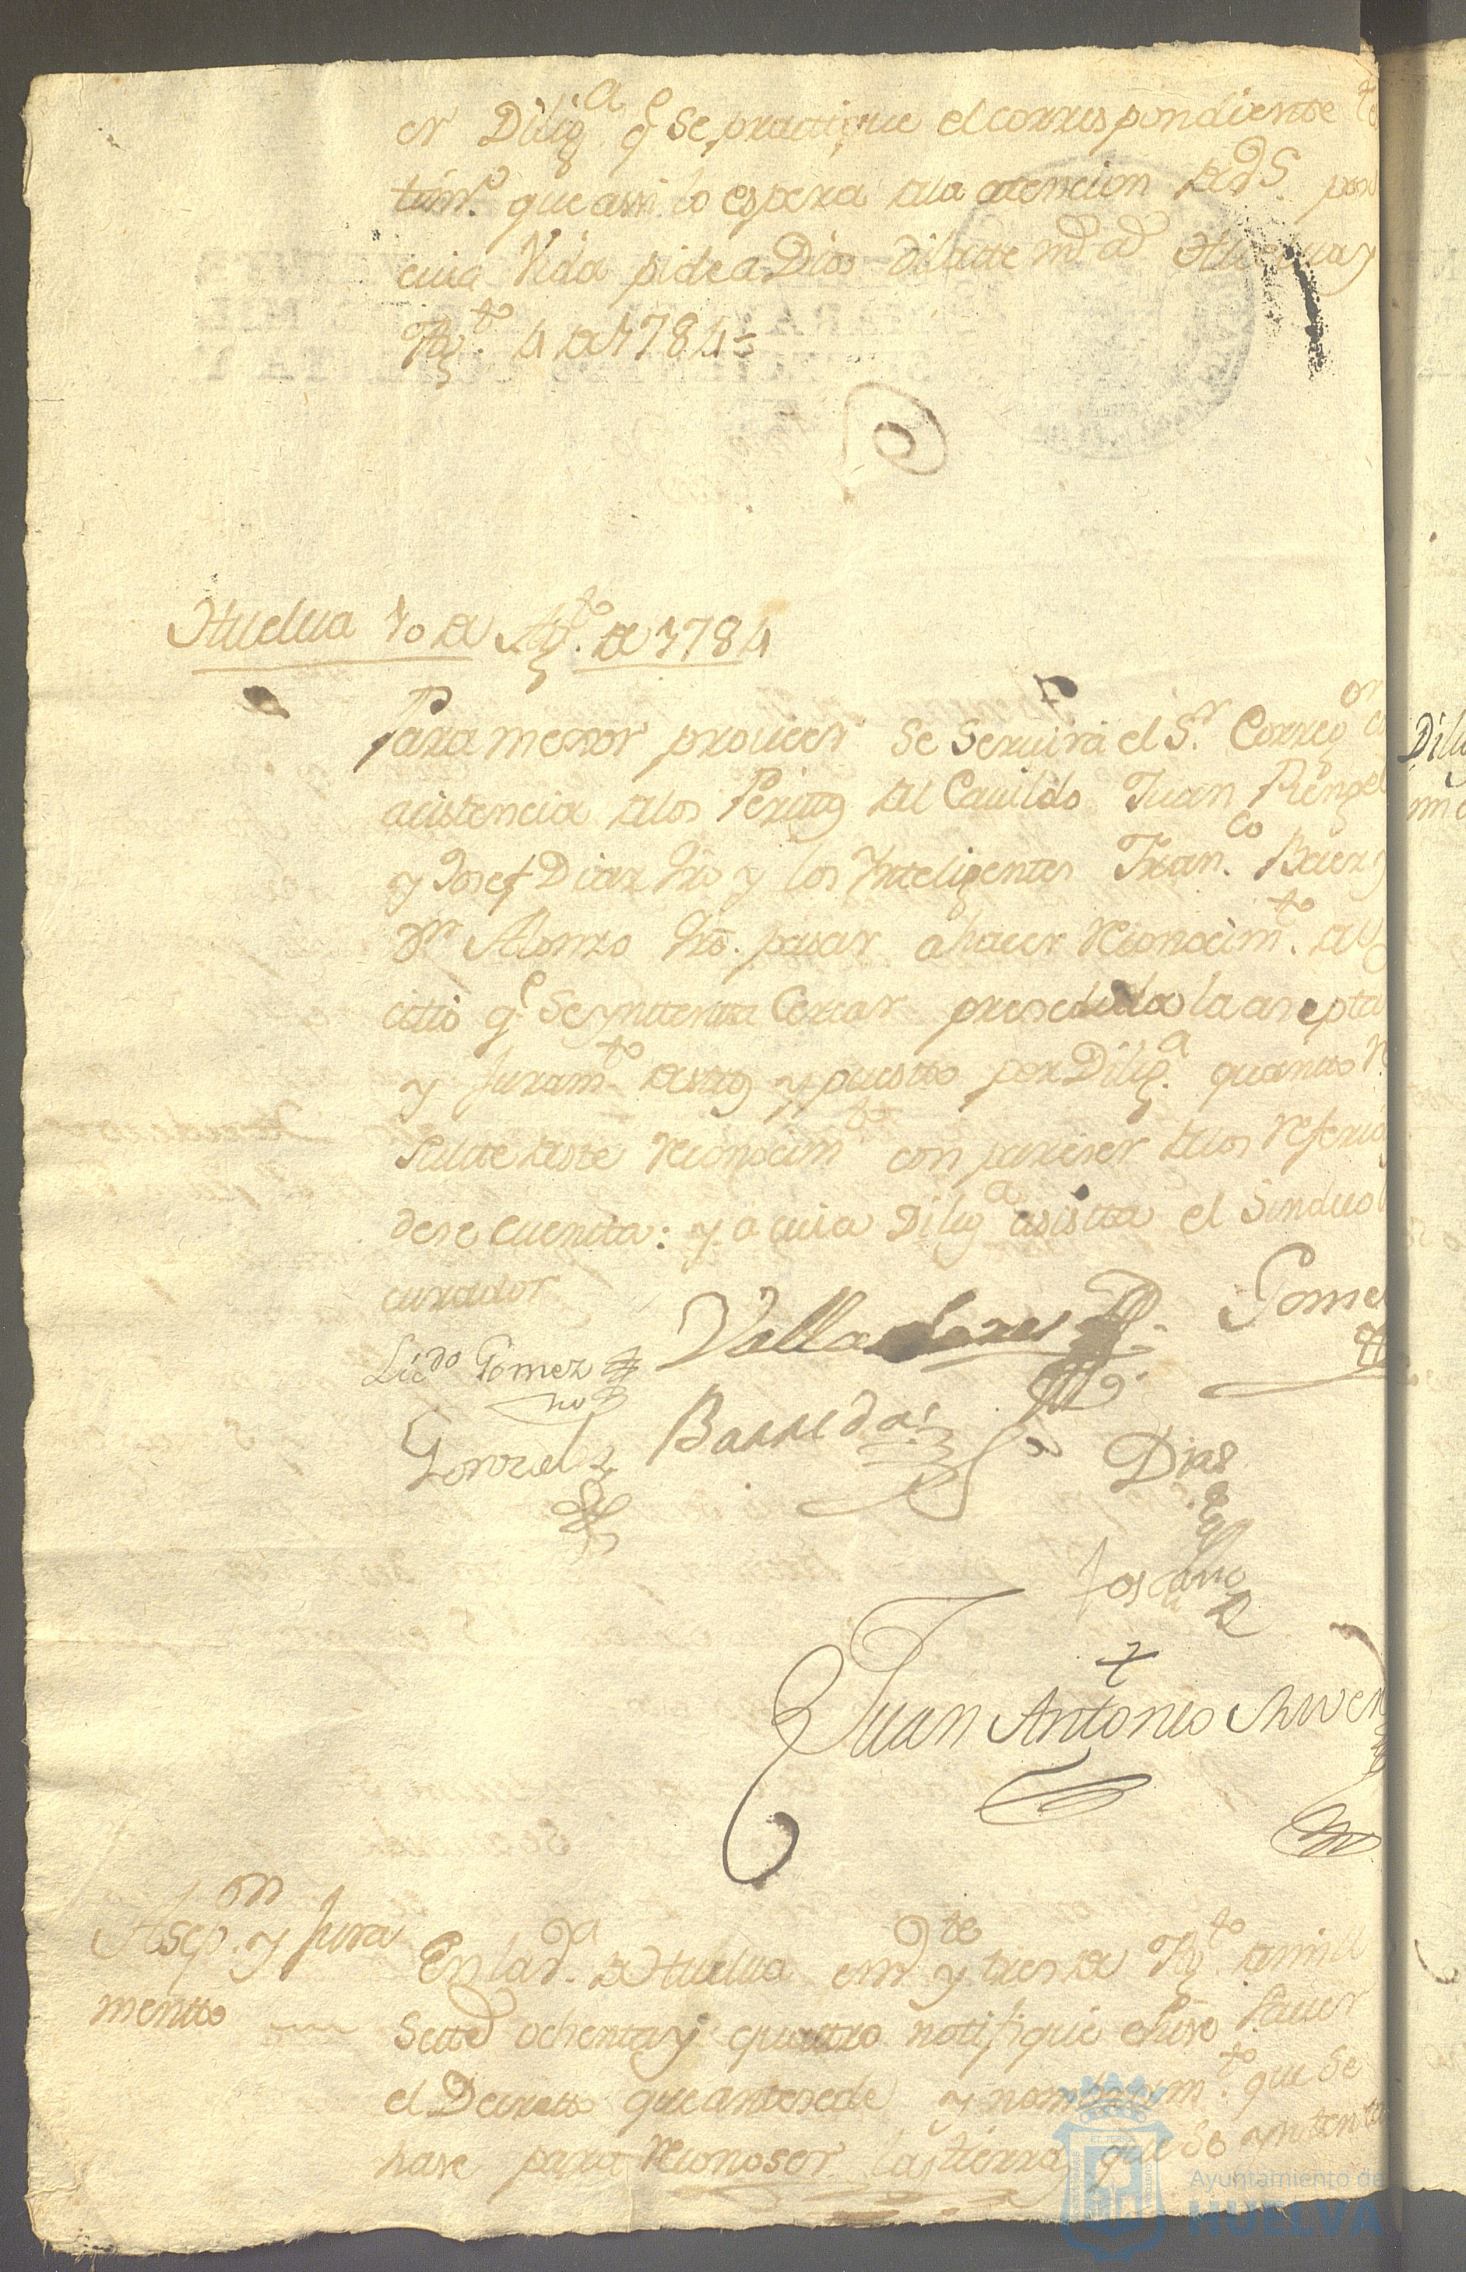 en Dilig.ª q.e se practique el correspondiente
tim.to que assi lo espera de la atencion de V.S. por
cuia Vida pide a Dios dilatte m.s a.s Huelua y
Ag.to 4 de 1784=
Huelua 10 de Ag.to de 1784
Para mexor proueer se seruirá el S.r Correg.or
acistencia de los Peritos del Cauildo Juan Rengel
y Josef Diaz Hro y los Ynteligentes Fran.co Baez y
Alonzo Hro. pasar a hacer reconocim.to del
citio q.e se yntenta Cercar presedida la asepta
y juram.to destos y puesto por Dilig.ª quanto re
sulte deste reconocim.to con pareser de los referidos
dese cuenta: y a cuia Dilig.ª asista el Sindico
curador
Lic.do Gomez
Valladares
Gomez
Gonzalez
Barreda
Dias
Toscano
Juan Antonio
Asep.on y Jura
mentto
En la d.ª de Huelua en v.te y tres de Ag.to de mill
Sett.s ochenta y quattro notifiqué e hise sauer
el Decretto que antesede y nombram.to que se
hase para reconoser las tierras que se yntenta
Dilig
Ayuntamiento de
HUELVA